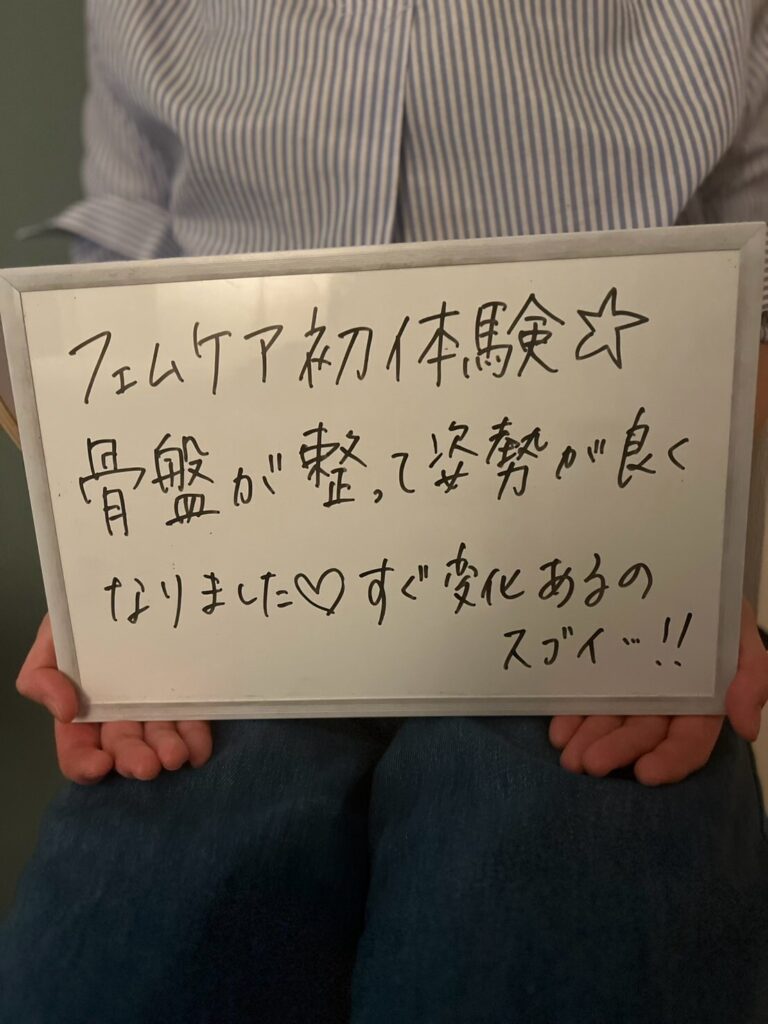 フェムケア初体験☆
骨盤が整って姿勢が良く
なりました♡すぐ変化あるの
スゴイ…!!